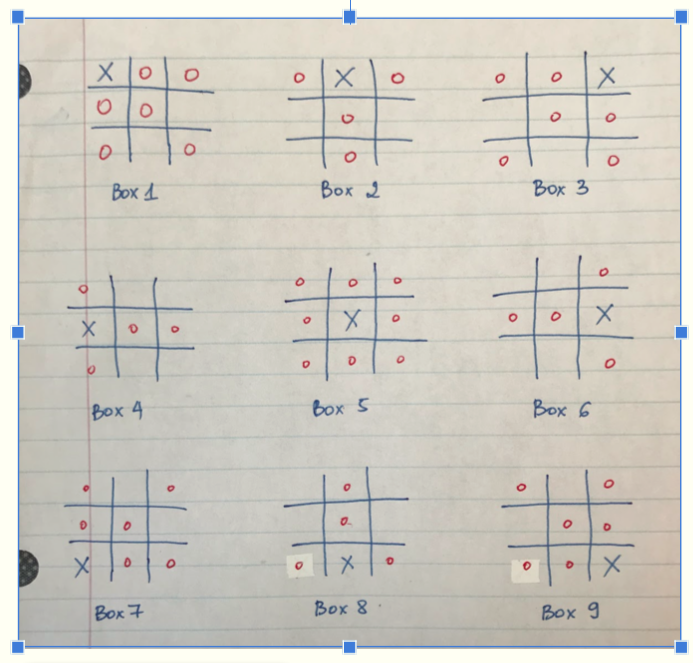 X O O
O O
O O
Box 1
O X O
O
O
Box 2
O O X
O O
O O
Box 3
O
X O O
O
Box 4
O O O
O X O
O O O
Box 5
O
O O X
O
Box 6
O O
O O
X O O
Box 7
O
O
O X O
Box 8
O O
O O
O O X
Box 9